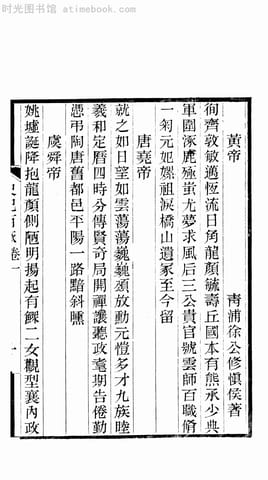 时光图书馆 · atimebook.com
黃帝 青浦徐公修慎侯著
徇齊敦敏邁恆流日角龍顏毓壽丘國本有熊承少典
軍圍涿鹿殛蚩尤夢求風后登三公貴官號雲師百職脩
一掬元妃嫘祖淚橋山遺冢至今留
唐堯帝
就之如日望如雲蕩蕩巍巍頌放勳元愷多才九族睦
羲和定曆四時分傳賢奇局開禪讓聽政耄期告倦勤
憑弔陶唐舊都邑平陽一路黯斜曛
虞舜帝
姚墟誕降抱龍顏側陋明揚起有鰥二女觀型襄內政
卷一 一